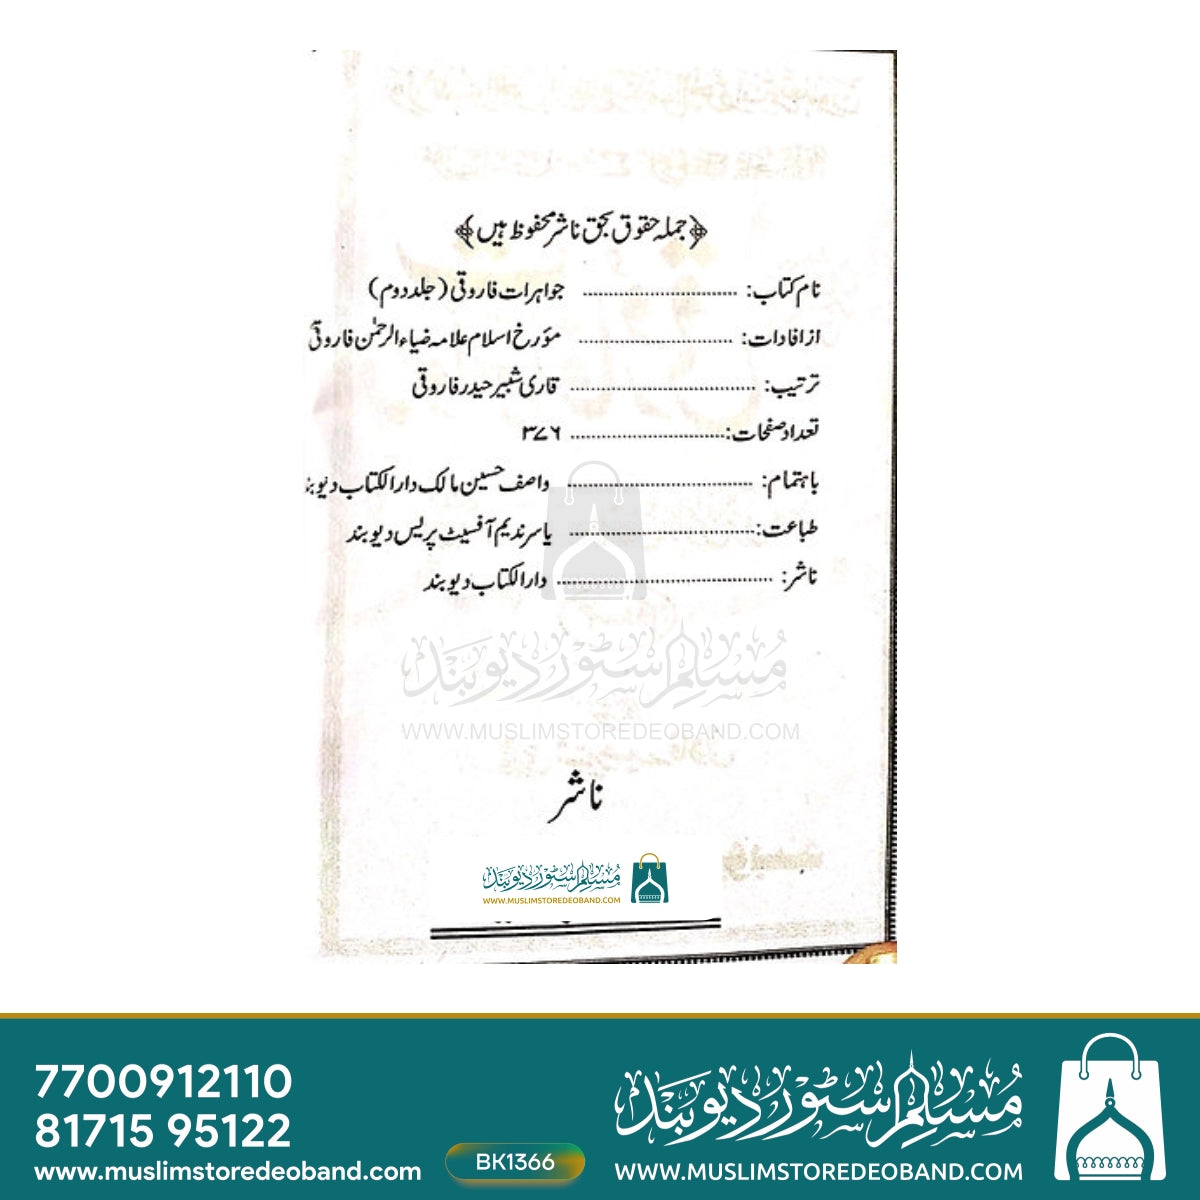 ﴿جملہ حقوق بحق ناشر محفوظ ہیں﴾
نام کتاب: ........................ جواہرات فاروقی (جلد دوم)
از افادات: ........................ مؤرخ اسلام علامہ ضیاء الرحمٰن فاروقی
ترتیب: ............................ قاری شبیر حیدر فاروقی
تعداد صفحات: ........................ ۳۷۶
باہتمام: ............................ واصف حسین مالک دارالکتاب دیوبند
طباعت: ............................ یاسر ندیم آفسیٹ پریس دیوبند
ناشر: ................................ دارالکتاب دیوبند
مسلم سٹور دیوبند
WWW.MUSLIMSTOREDEOBAND.COM
ناشر
مسلم سٹور دیوبند
WWW.MUSLIMSTOREDEOBAND.COM
7700912110
81715 95122
www.muslimstoredeoband.com
BK1366
مسلم سٹور دیوبند
WWW.MUSLIMSTOREDEOBAND.COM